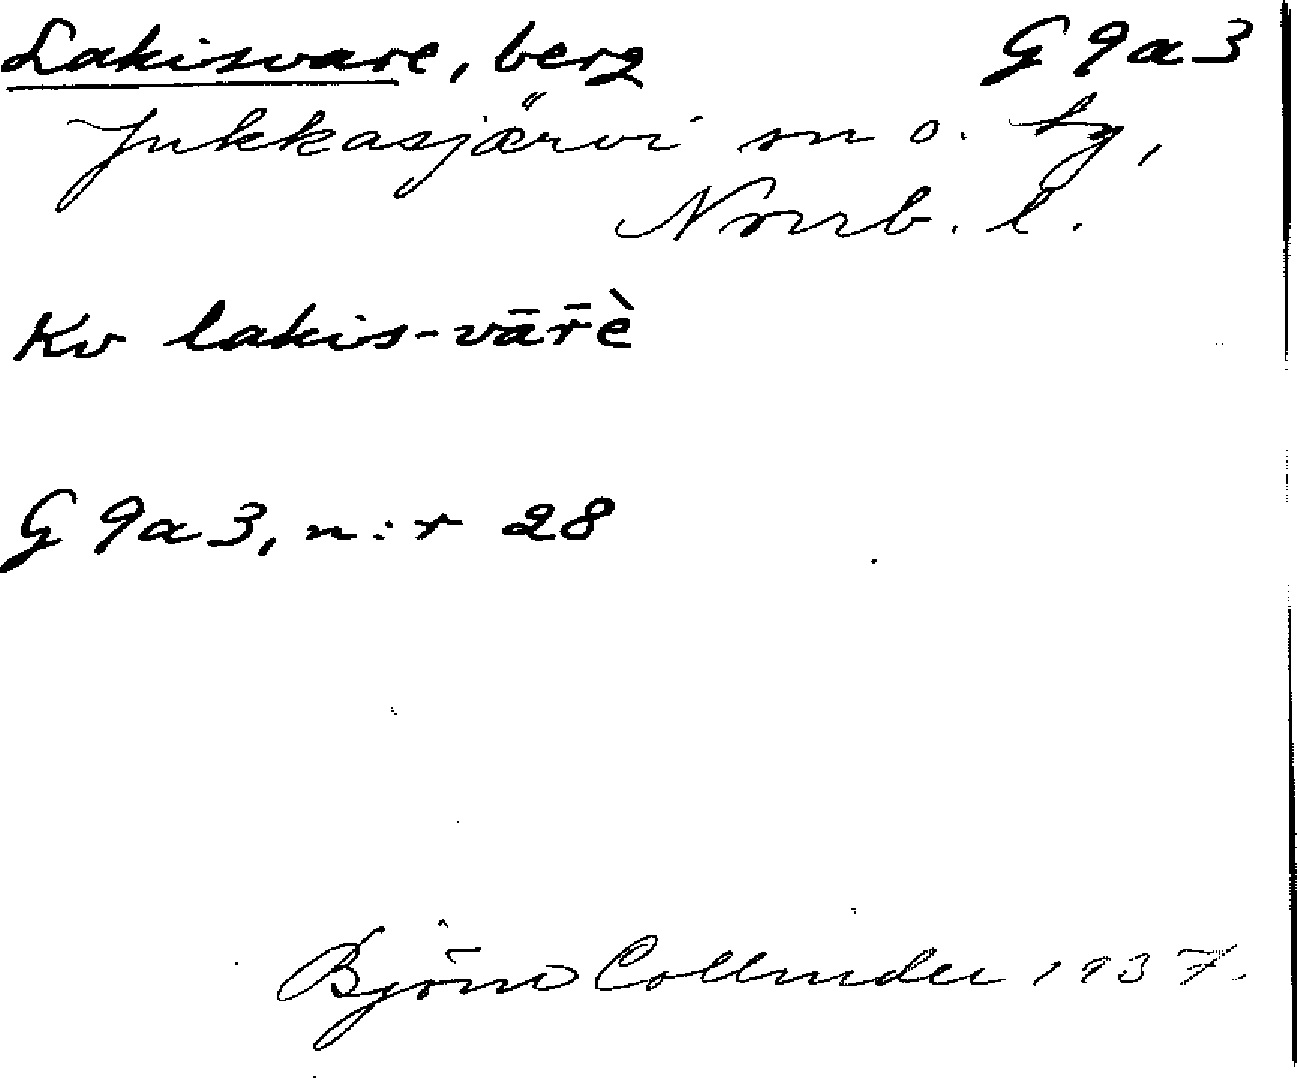 Lakisvare, berg G 9a 3
Jukkasjärvi sn o. tg,
Norrb. l.
Kv lakis-vār̄è
G 9a 3, n:r 28
Björn Collinder 1937.